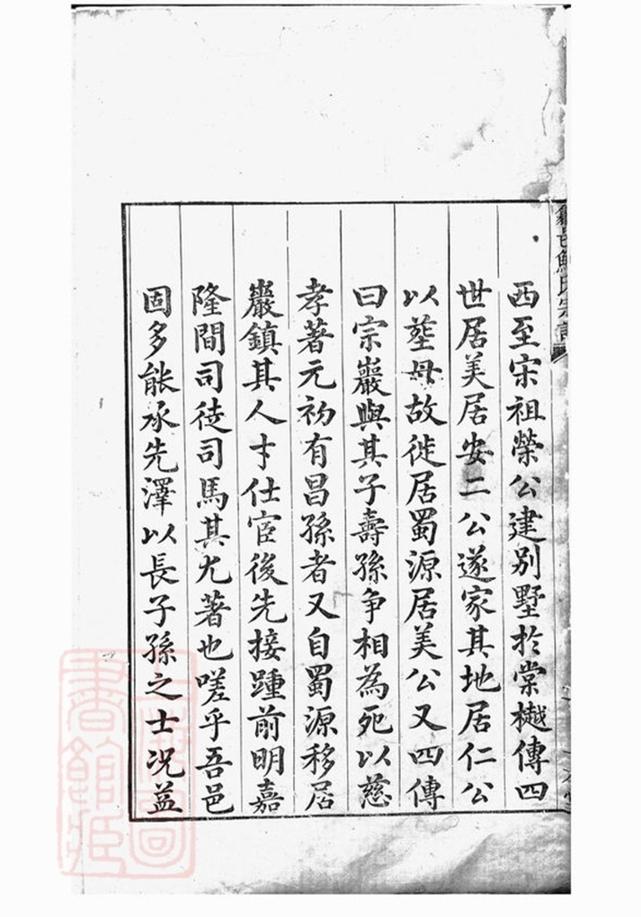 歙邑鮑氏宗譜
西至宋祖榮公建别墅於棠樾傳四
世居美居安二公遂家其地居仁公
以塟母故徙居蜀源居美公又四傳
曰宗巖與其子壽孫争相為死以慈
孝著元初有昌孫者又自蜀源移居
巖鎮其人才仕宦後先接踵前明嘉
隆間司徒司馬其尤著也嗟乎吾邑
固多能承先澤以長子孫之士况益